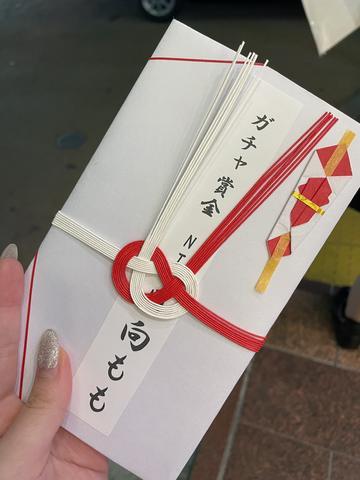 ガチャ賞金 NT
向もも